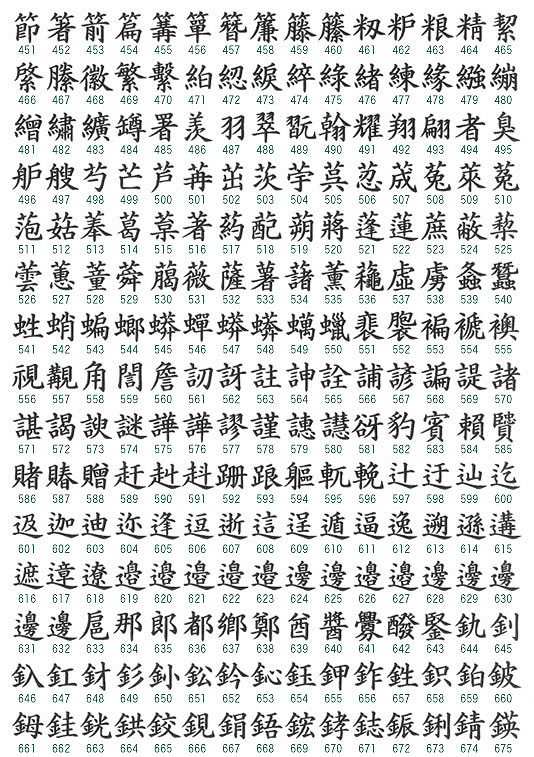 節 箸 箭 篇 篝 簞 簪 簾 籐 籘 籾 粐 粮 精 絜
451 452 453 454 455 456 457 458 459 460 461 462 463 464 465
綮 縢 徽 繁 繫 絈 綛 綟 綷 綠 緒 練 緣 繈 繃
466 467 468 469 470 471 472 473 474 475 476 477 478 479 480
繒 繡 纊 罇 署 羨 羽 翠 翫 翰 耀 翔 翩 者 臭
481 482 483 484 485 486 487 488 489 490 491 492 493 494 495
舮 艘 芍 芒 芦 苒 茁 茨 茡 茣 荵 荿 菟 萊 菟
496 497 498 499 500 501 502 503 504 505 506 507 508 509 510
萢 菇 菶 葛 葈 著 葯 蓜 蒴 蔣 蓬 蓮 蔗 蔽 蔾
511 512 513 514 515 516 517 518 519 520 521 522 523 524 525
蕓 蕙 董 蕣 藹 薇 薩 薯 藷 薰 蘒 虛 虜 螽 蠶
526 527 528 529 530 531 532 533 534 535 536 537 538 539 540
蛙 蛸 蝙 螂 蟒 蟬 蟒 蠎 蠣 蠟 裴 褜 褊 褫 襖
541 542 543 544 545 546 547 548 549 550 551 552 553 554 555
視 覯 角 誾 詹 訒 訝 註 訷 詮 誧 諺 諞 諟 諸
556 557 558 559 560 561 562 563 564 565 566 567 568 569 570
諶 謁 諛 謎 譁 譁 謬 謹 譓 譿 谺 豹 賓 賴 贒
571 572 573 574 575 576 577 578 579 580 581 582 583 584 585
賭 賰 贈 赶 赳 赳 跚 跟 軀 軏 輓 辻 迂 辿 迄
586 587 588 589 590 591 592 593 594 595 596 597 598 599 600
返 迦 迪 迩 逢 逗 逝 這 逞 遁 逼 逸 遡 遜 遘
601 602 603 604 605 606 607 608 609 610 611 612 613 614 615
遮 遧 遼 邉 邉 邉 邉 邉 邉 邉 邉 邊 邊 邊 邊
616 617 618 619 620 621 622 623 624 625 626 627 628 629 630
邊 邊 扈 那 郎 都 鄕 鄭 酋 醬 釁 醱 鋻 釚 釗
631 632 633 634 635 636 637 638 639 640 641 642 643 644 645
釟 釭 釮 釤 釥 鈆 鈐 鈊 鈺 鉀 鈼 鉎 鉙 鉑 鈹
646 647 648 649 650 651 652 653 654 655 656 657 658 659 660
鉧 銈 銧 鉷 鉸 鋧 鋗 鋙 鋐 鋍 鋕 鋠 鋓 錆 鍈
661 662 663 664 665 666 667 668 669 670 671 672 673 674 675